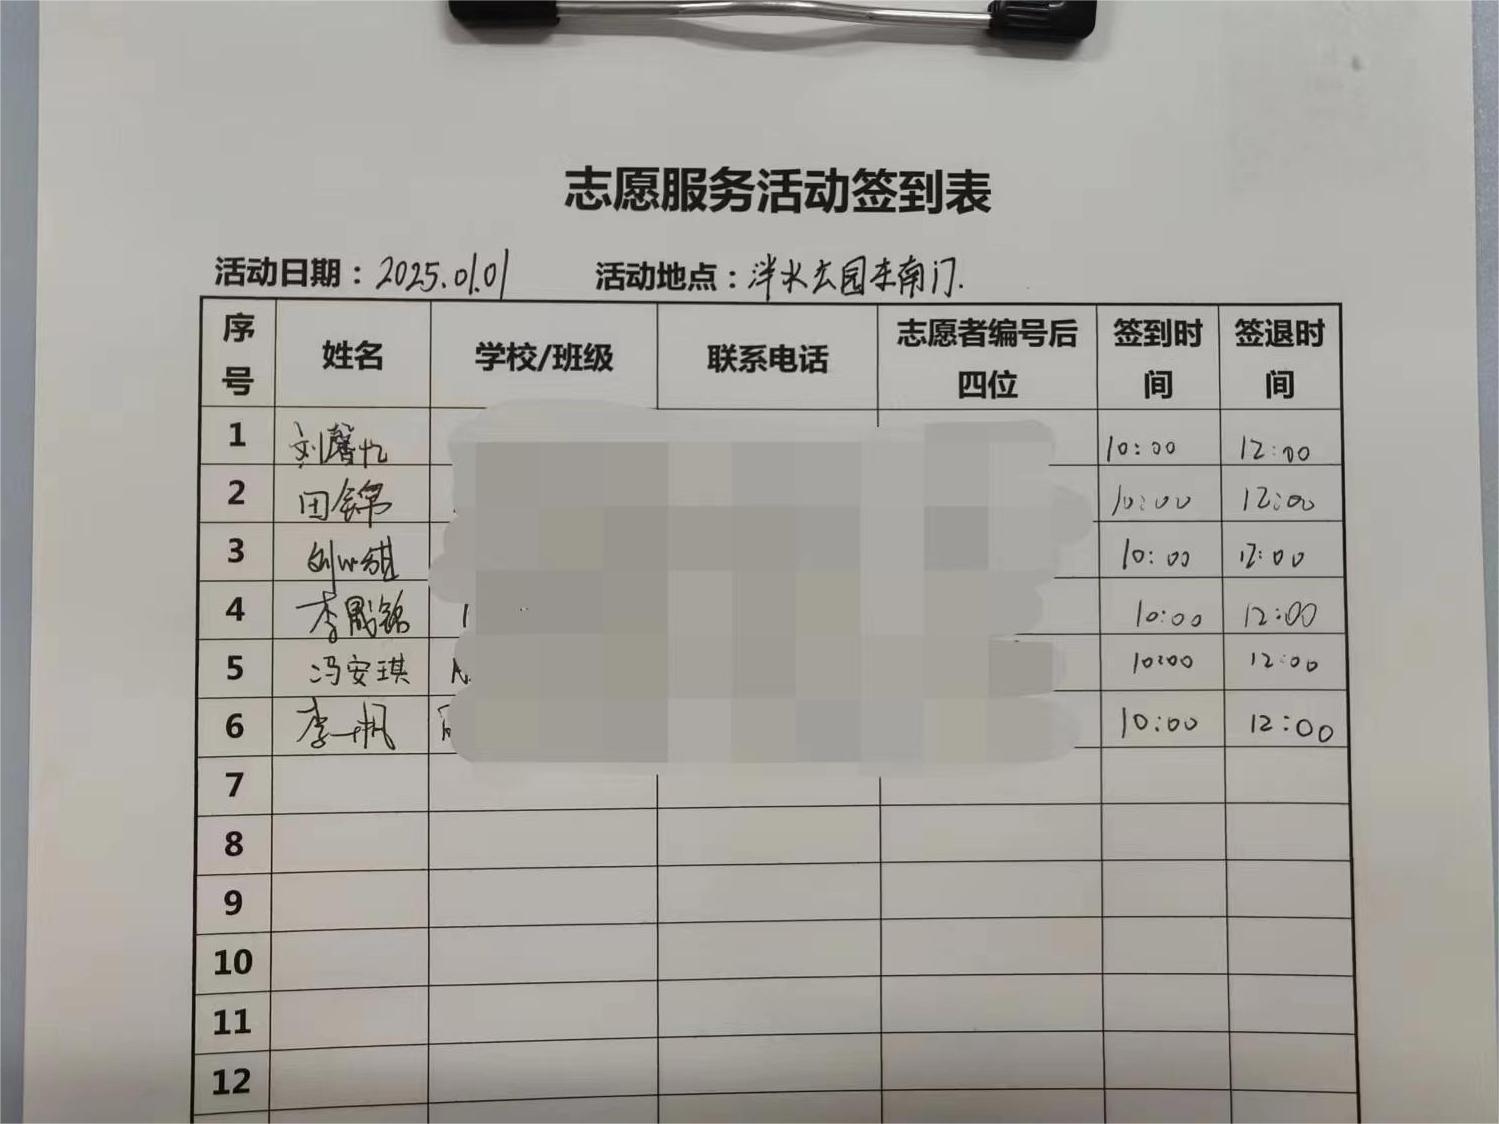 志愿服务活动签到表
活动日期：2025.01.01 活动地点：泮水公园东南门.
序号 姓名 学校/班级 联系电话 志愿者编号后四位 签到时间 签退时间
1 刘馨忆 10:00 12:00
2 田锦 10:00 12:00
3 10:00 12:00
4 李晟铭 10:00 12:00
5 冯安琪 10:00 12:00
6 李一枫 10:00 12:00
7
8
9
10
11
12